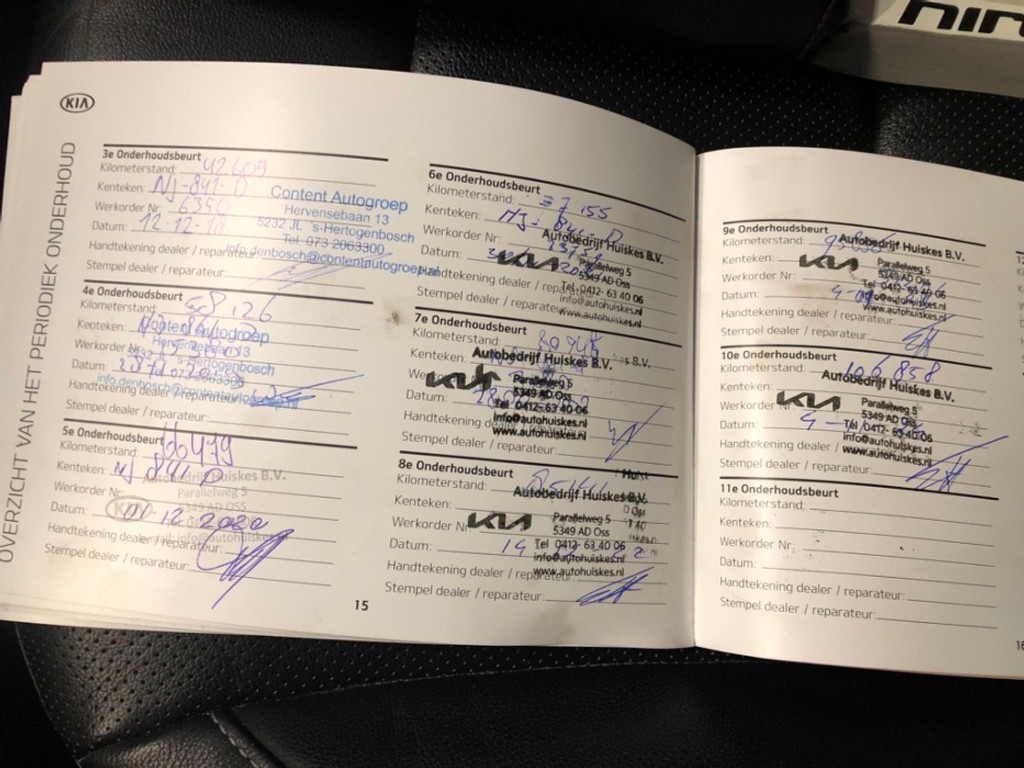 KIA
OVERZICHT VAN HET PERIODIEK ONDERHOUD
3e Onderhoudsbeurt
Kilometerstand: 42.609
Kenteken: NJ-841-D
Werkorder Nr: 6350
Datum: 12-12-
Handtekening dealer / reparateur:
Stempel dealer / reparateur:
Content Autogroep
Hervensebaan 13
5232 JL 's-Hertogenbosch
Tel. 073 2063300
info.denbosch@contentautogroep.nl
4e Onderhoudsbeurt
Kilometerstand: 58.126
Kenteken:
Werkorder Nr:
Datum:
Handtekening dealer / reparateur:
Stempel dealer / reparateur:
Content Autogroep
Hervensebaan 13
5232 JL 's-Hertogenbosch
info.denbosch@contentautogroep.nl
5e Onderhoudsbeurt
Kilometerstand: 66479
Kenteken: NJ 841 D
Werkorder Nr:
Datum: 01 12 2020
Handtekening dealer / reparateur:
Stempel dealer / reparateur:
Autobedrijf Huiskes B.V.
Parallelweg 5
5349 AD OSS
KIA
15
6e Onderhoudsbeurt
Kilometerstand: 155
Kenteken: NJ-841-D
Werkorder Nr:
Datum:
Handtekening dealer / reparateur:
Stempel dealer / reparateur:
Autobedrijf Huiskes B.V.
KIA
Parallelweg 5
5349 AD Oss
Tel. 0412- 63 40 06
info@autohuiskes.nl
www.autohuiskes.nl
7e Onderhoudsbeurt
Kilometerstand:
Kenteken:
Datum:
Handtekening dealer / reparateur:
Stempel dealer / reparateur:
Autobedrijf Huiskes B.V.
KIA
Parallelweg 5
5349 AD Oss
Tel 0412- 63 40 06
info@autohuiskes.nl
www.autohuiskes.nl
8e Onderhoudsbeurt
Kilometerstand:
Kenteken:
Werkorder Nr:
Datum: 14
Handtekening dealer / reparateur:
Stempel dealer / reparateur:
Autobedrijf Huiskes B.V.
KIA
Parallelweg 5
5349 AD Oss
Tel 0412- 63 40 06
info@autohuiskes.nl
www.autohuiskes.nl
9e Onderhoudsbeurt
Kilometerstand:
Kenteken:
Werkorder Nr:
Datum:
Handtekening dealer / reparateur:
Stempel dealer / reparateur:
Autobedrijf Huiskes B.V.
KIA
Parallelweg 5
5349 AD Oss
Tel 0412- 63 40 06
info@autohuiskes.nl
www.autohuiskes.nl
10e Onderhoudsbeurt
Kilometerstand: 106.858
Kenteken:
Werkorder Nr:
Datum: 4-
Handtekening dealer / reparateur:
Stempel dealer / reparateur:
Autobedrijf Huiskes B.V.
KIA
Parallelweg 5
5349 AD Oss
Tel 0412- 63 40 06
info@autohuiskes.nl
www.autohuiskes.nl
11e Onderhoudsbeurt
Kilometerstand:
Kenteken:
Werkorder Nr:
Datum:
Handtekening dealer / reparateur:
Stempel dealer / reparateur: